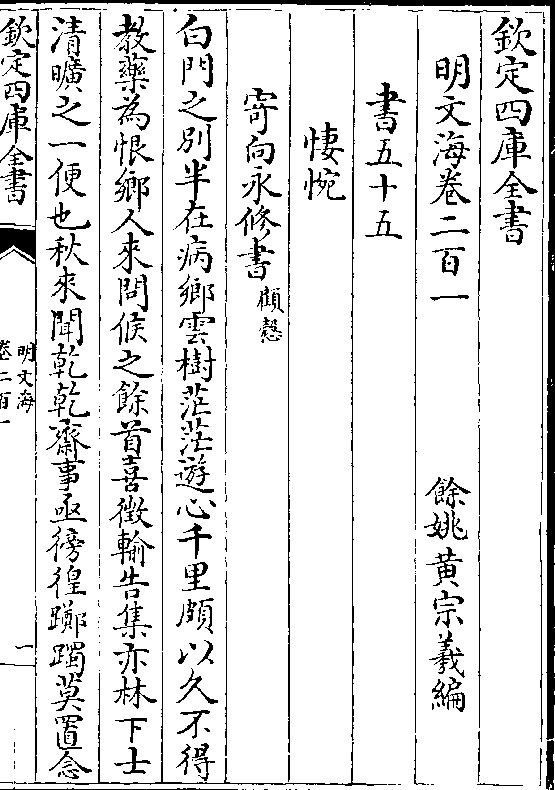 欽定四庫全書
明文海卷二百一
餘姚黄宗羲編
書五十五
悽惋
寄向永修書
顧愨
白門之別半在病鄉雲樹茫茫遊心千里頗以久不得
教藥為恨鄉人來問候之餘首喜徴輸告集亦林下士
清曠之一便也秋來聞乾乾齋事亟徬徨躑躅莫置念
欽定四庫全書
明文海
卷二百一
一